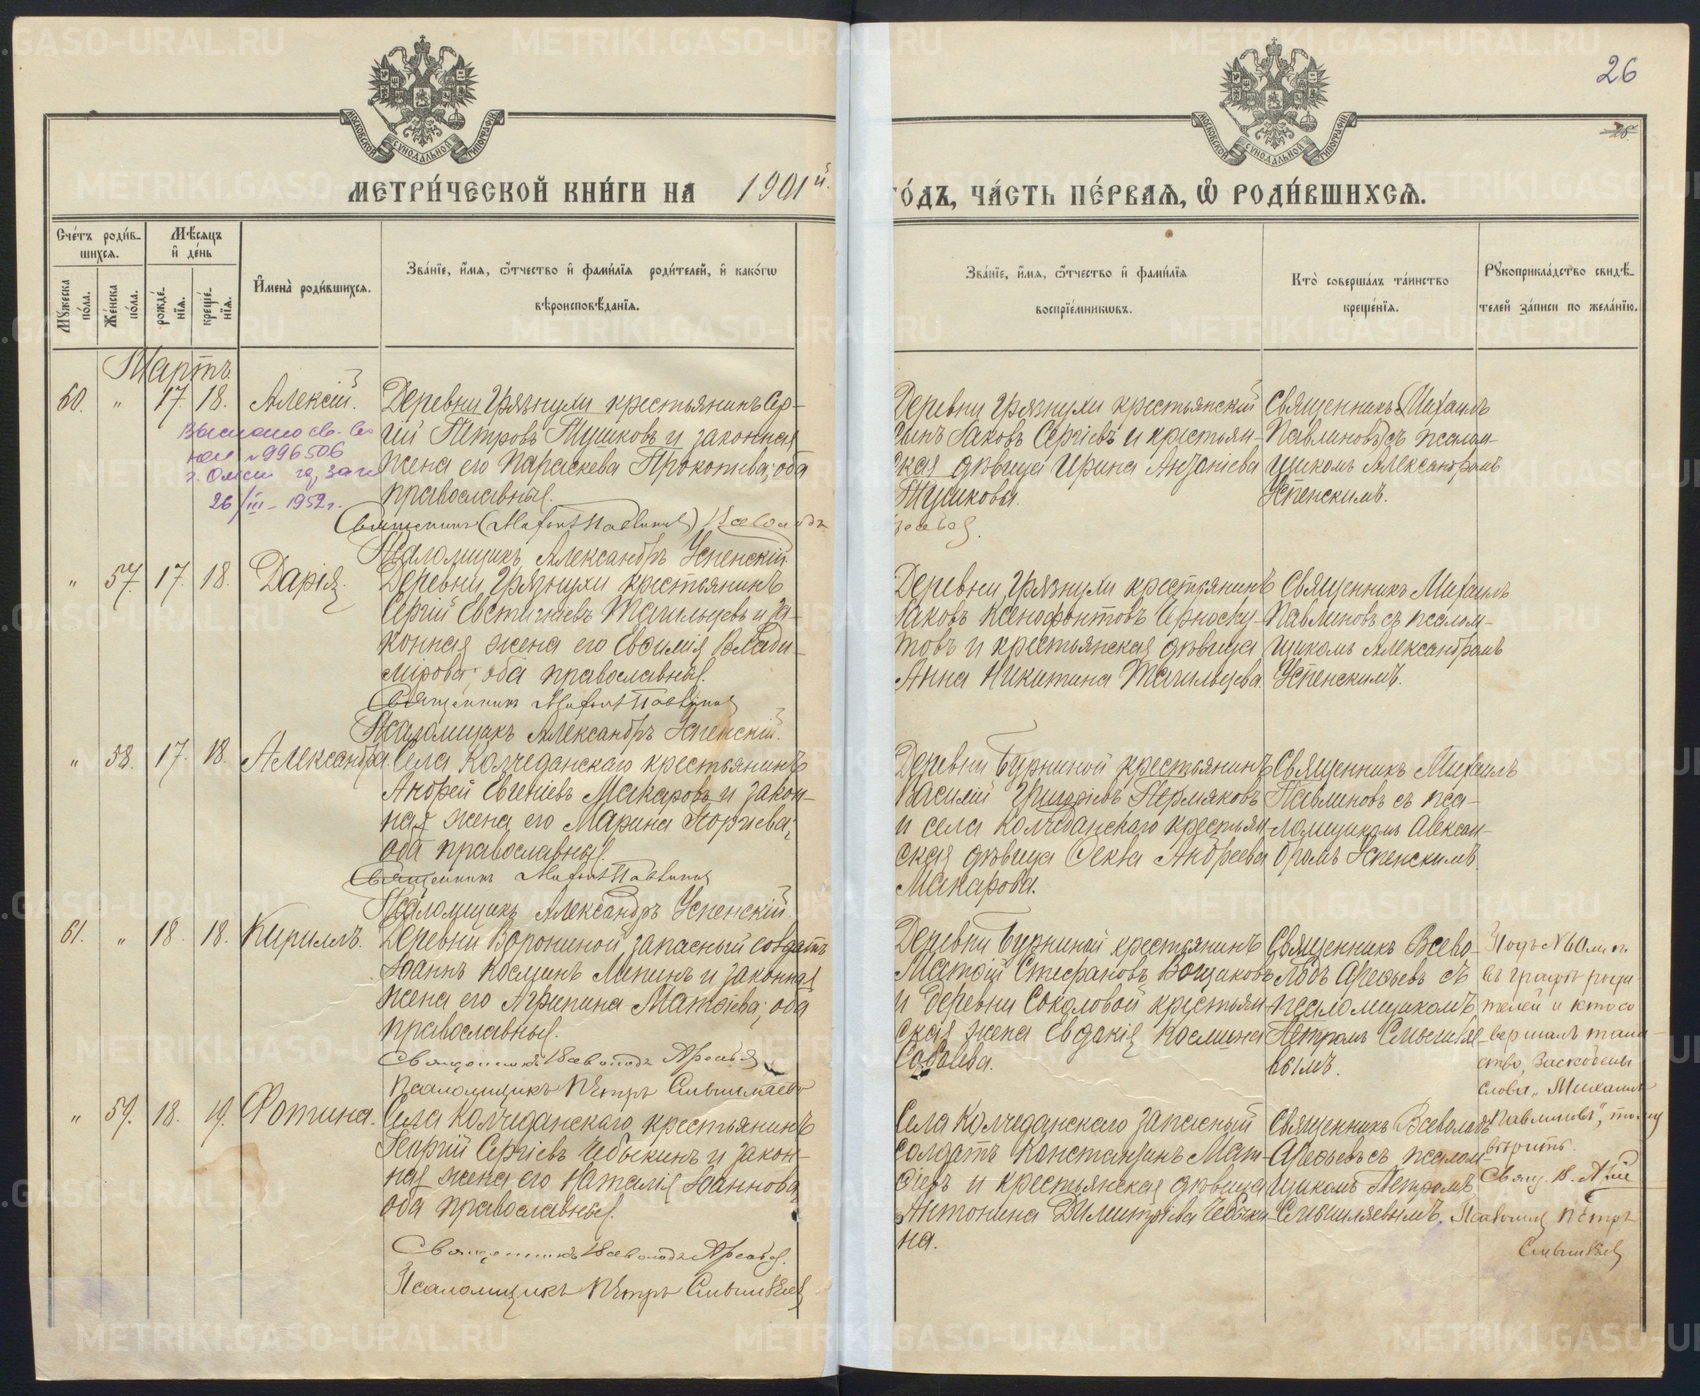 26
МЕТРИ́ЧЕСКОЙ КНИ́ГИ НА 1901й.
ГО́ДЪ, ЧА́СТЬ ПЕ́РВАЯ, Ѿ РОДИ́ВШИХСЯ.
Сче́тъ роди́вшихся.
Мѣ́сяцъ и҆ де́нь
Мꙋ́жеска по́ла.
Же́нска по́ла.
рожде́нїя.
креще́нїя.
И҆мена̀ роди́вшихся.
Зва́нїе, и҆́мя, ѻ҆́тчество и҆ фами́лїя роди́телей, и҆ како́гѡ
вѣроисповѣ́данїя.
Зва́нїе, и҆́мя, ѻ҆́тчество и҆ фами́лїя
воспрїе́мникѡвъ.
Кто̀ соверша́лъ та́инство
креще́нїя.
Рꙋкоприкла́дство свидѣ́телей за́писи по жела́нїю.
Мартъ
60. „ 17. 18. Алексій.
Деревни Грязнухи крестьянинъ Сер-
гій Петровъ Тушковъ и законная
жена его Параскева Прокопіева; оба
православные.
Деревни Грязнухи крестьянскій
сынъ Іаковъ Сергіевъ и крестьян-
ская дѣвица Ирина Антоніева
Тушкова.
Священникъ Михаилъ
Павлиновъ съ псалом-
щикомъ Александромъ
Успенскимъ.
№996506
26/III - 1952г.
Псаломщикъ Александръ Успенскій.
„ 57. 17. 18. Дарія.
Деревни Грязнухи крестьянинъ
Сергій Евстигнеевъ Тагильцевъ и за-
конная жена его Евфимія Влади-
мірова; оба православные.
Священникъ Михаилъ Павлиновъ
Псаломщикъ Александръ Успенскій.
Деревни Грязнухи крестьянинъ
Іаковъ Ксенофонтовъ Черноску-
товъ и крестьянская дѣвица
Анна Никитина Тагильцева
Священникъ Михаилъ
Павлиновъ съ псалом-
щикомъ Александромъ
Успенскимъ.
„ 58. 17. 18. Александра
Села Колчеданскаго крестьянинъ
Андрей Евгеніевъ Макаровъ и закон-
ная жена его Марина Георгіева;
оба православные.
Священникъ Михаилъ Павлиновъ
Псаломщикъ Александръ Успенскій.
Деревни Бурниной крестьянинъ
Василій Григоріевъ Пермяковъ
и села Колчеданскаго крестьян-
ская дѣвица Ѳекла Андреева
Макарова.
Священникъ Михаилъ
Павлиновъ съ пса-
ломщикомъ Алексан-
дромъ Успенскимъ
61. „ 18. 18. Кириллъ.
Деревни Ворониной запасный солдатъ
Іоаннъ Косминъ Липинъ и законная
жена его Агрипина Матѳіева; оба
православные.
Священникъ Всеволодъ Арефьевъ
Псаломщикъ Петръ Смышляевъ
Деревни Бурниной крестьянинъ
Матѳій Стефановъ
и деревни Соколовой крестьян-
ская жена Евдокія Космина
Священникъ Всево-
лодъ Арефьевъ съ
псаломщикомъ
Петромъ Смышляе-
вымъ.
въ графѣ роди
телей и кто со
вершалъ таин
ство,
слова „Михаилъ
Павлиновъ", тому
вѣрить.
„ 59. 18. 19. Фотина.
Села Колчеданскаго крестьянинъ
Георгій Сергіевъ Чебыкинъ и закон-
ная жена его Наталія Іоаннова
оба православные.
Священникъ Всеволодъ Арефьевъ.
Псаломщикъ Петръ Смышляевъ
Села Колчеданскаго запасный
солдатъ Константинъ Мат-
ѳіевъ и крестьянская дѣвица
Антонина Димитріева Чебыки-
на.
Священникъ Всеволодъ
Арефьевъ съ псалом-
щикомъ Петромъ
Смышляевымъ.
Псаломщ Петръ
Смышляевъ
METRIKI.GASO-URAL.RU